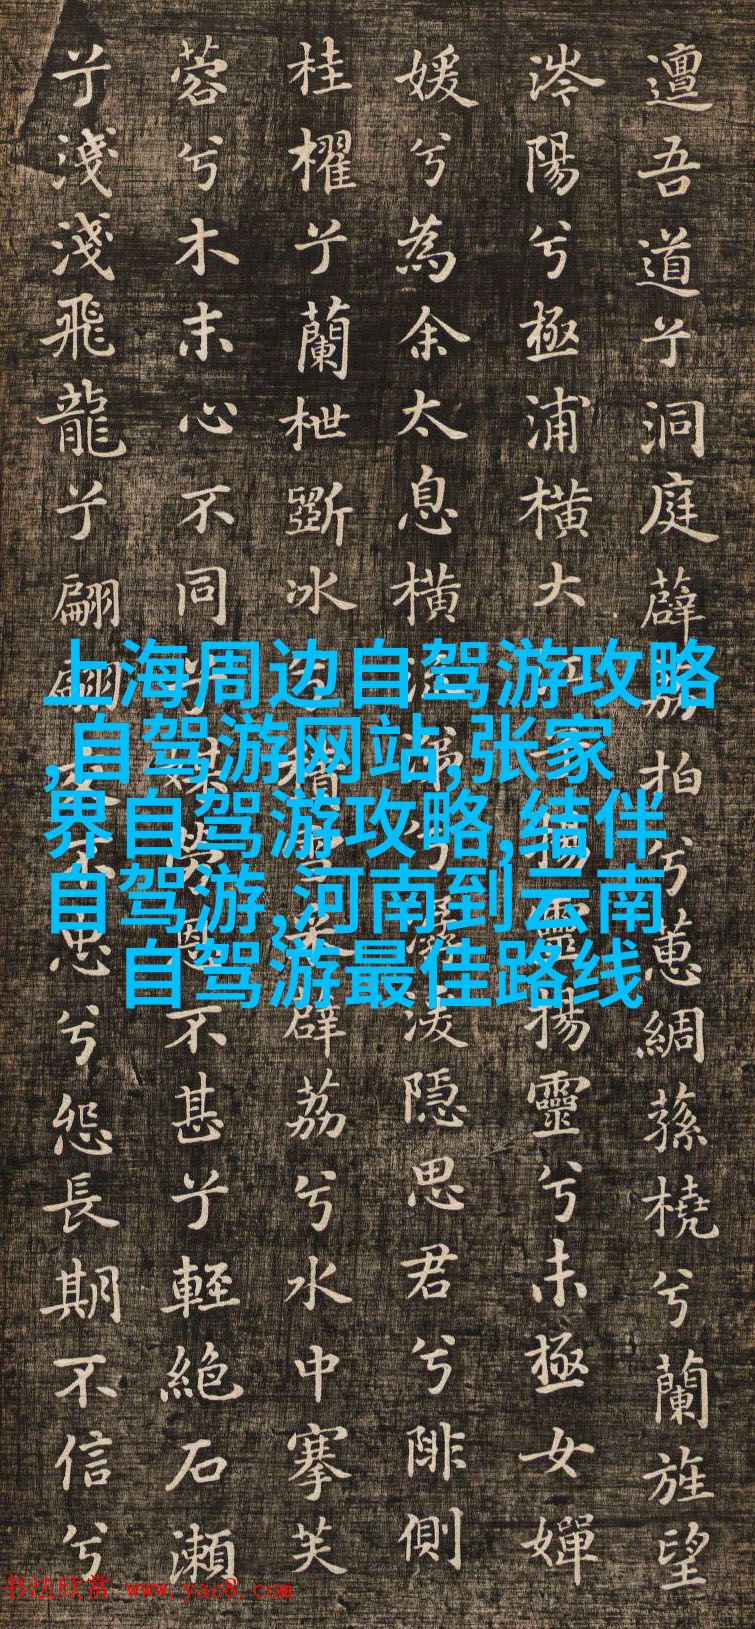 邅吾道兮洞庭薜荔柏兮蕙綢蓀橈兮蘭旌望
涔陽兮極浦橫大江兮揚靈揚靈兮未極女嬋
媛兮為余太息橫流涕兮潺湲隱思君兮陫側
桂櫂兮蘭枻斲冰兮積雪采薜荔兮水中搴芙
蓉兮木末心不同兮媒勞恩不甚兮輕絕石瀨
兮淺淺飛龍兮翩翩交不忠兮怨長期不信兮
上海周边自驾游攻略
,自驾游网站,张家
界自驾游攻略,结伴
自驾游,河南到云南
自驾游最佳路线
书法欣赏 www.yac8.com